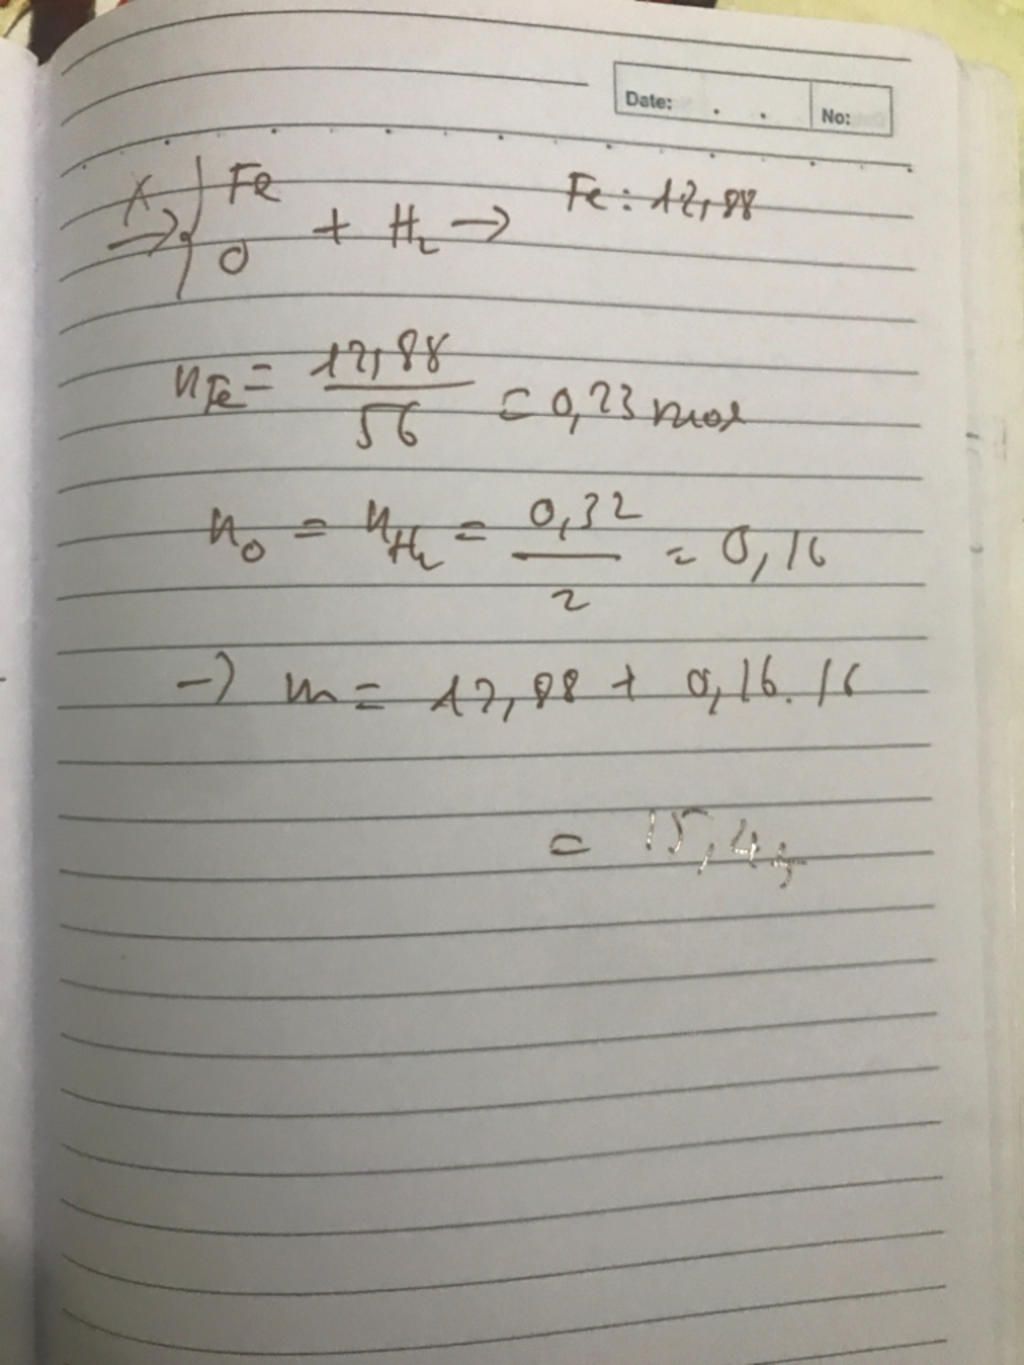 Date: . . No:
X
Fe
+ H₂ → Fe: 12,88
O
n_Fe = 12,88 / 56 = 0,23 mol
n_O = n_H₂ = 0,32 / 2 = 0,16
→ m = 12,88 + 0,16.16
= 15,44